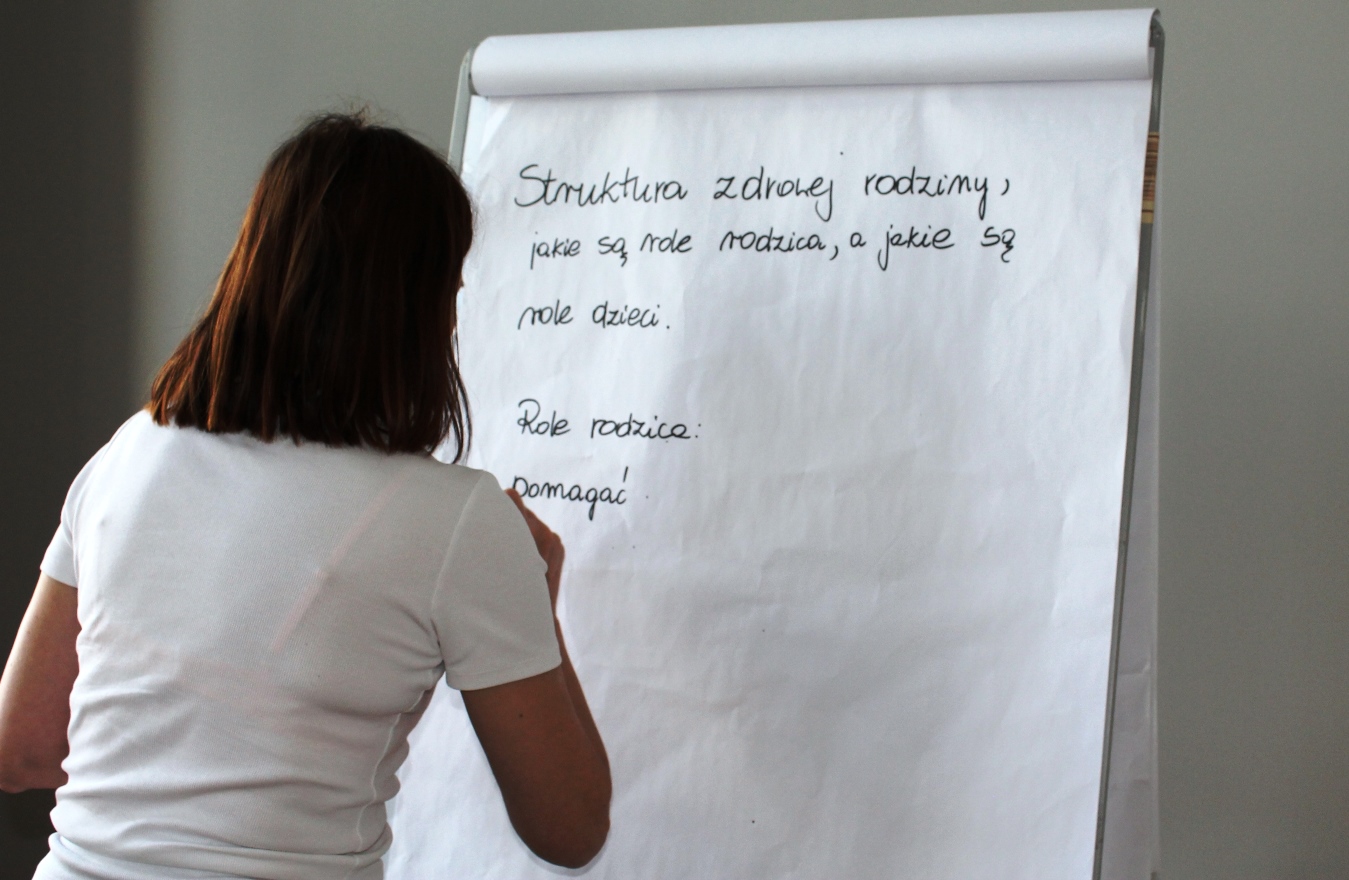 Struktura zdrowej rodziny,
jakie są role rodzica, a jakie są
role dzieci.
Role rodzica:
pomagać